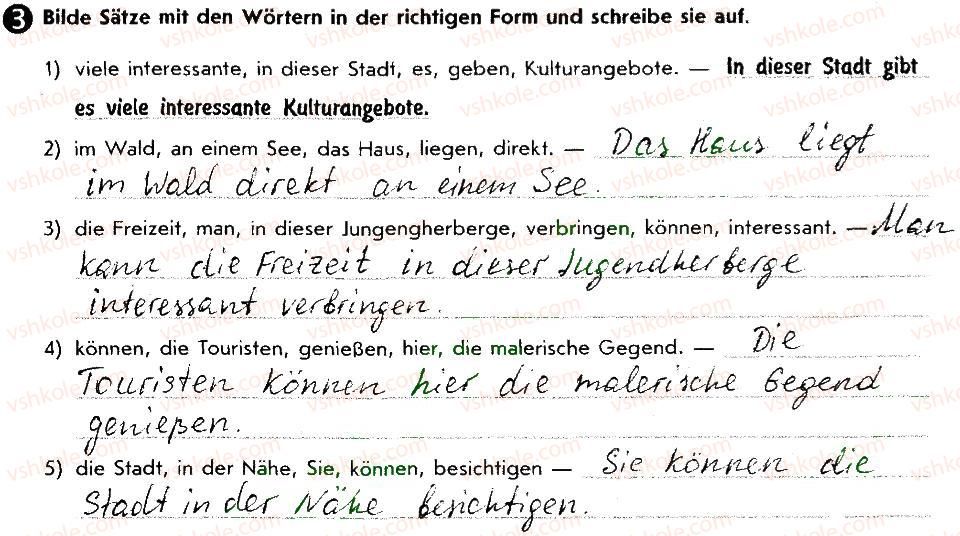 3 Bilde Sätze mit den Wörtern in der richtigen Form und schreibe sie auf.
1) viele interessante, in dieser Stadt, es, geben, Kulturangebote. — In dieser Stadt gibt
es viele interessante Kulturangebote.
2) im Wald, an einem See, das Haus, liegen, direkt. — Das Haus liegt
im Wald direkt an einem See.
3) die Freizeit, man, in dieser Jungengherberge, verbringen, können, interessant. — Man
kann die Freizeit in dieser Jugendherberge
interessant verbringen.
4) können, die Touristen, genießen, hier, die malerische Gegend. — Die
Touristen können hier die malerische Gegend
genießen.
5) die Stadt, in der Nähe, Sie, können, besichtigen — Sie können die
Stadt in der Nähe besichtigen.